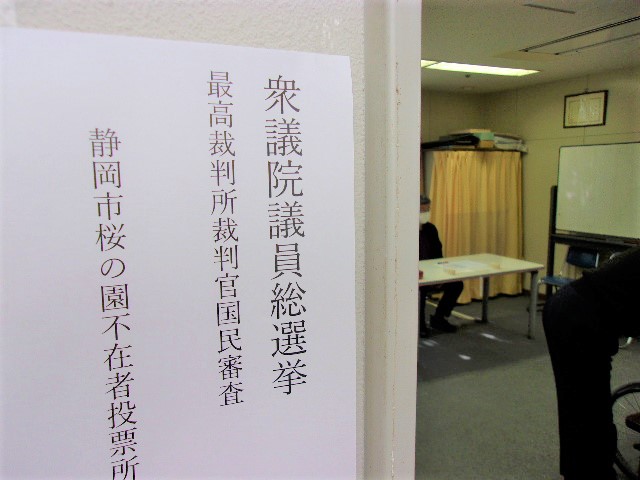 衆議院議員総選挙
最高裁判所裁判官国民審査
静岡市桜の園不在者投票所